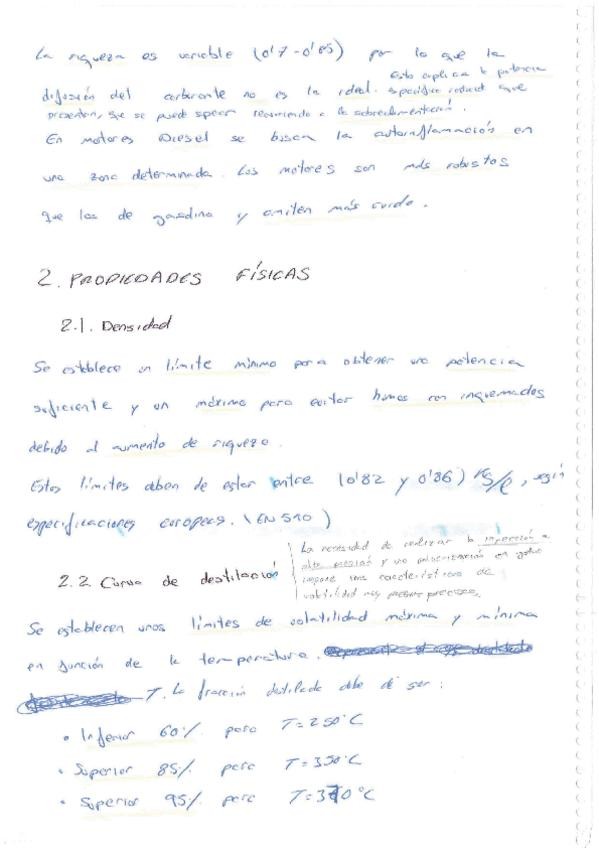 La riqueza es variable (0'7-0'85) por lo que la
difusión del carburante no es la ideal. Esto explica la potencia
específica reduci que
presentan, que se puede recurriendo a la sobrealimentación.
En motores Diesel se busca la autoinflamación en
una zona determinada. Los motores son más robustos
que los de gasolina y emiten más ruido.
2. PROPIEDADES FÍSICAS
2.1. Densidad
Se establece un límite mínimo para obtener una potencia
suficiente y un máximo para evitar humos con inquemados
debido al aumento de riqueza.
Estos límites deben de estar entre (0'82 y 0'86) Kg/l, según
especificaciones europeas. (EN 590)
2.2 Curva de destilación
La necesidad de realizar la inyección a
alta presión y una pulverización en gotas
impone unas características de
volatilidad muy precisas.
Se establecen unos límites de volatilidad máxima y mínima
en función de la temperatura.
T. La fracción destilada debe de ser:
• Inferior 60% para T=250°C
• Superior 85% para T=350°C
• Superior 95% para T=370°C